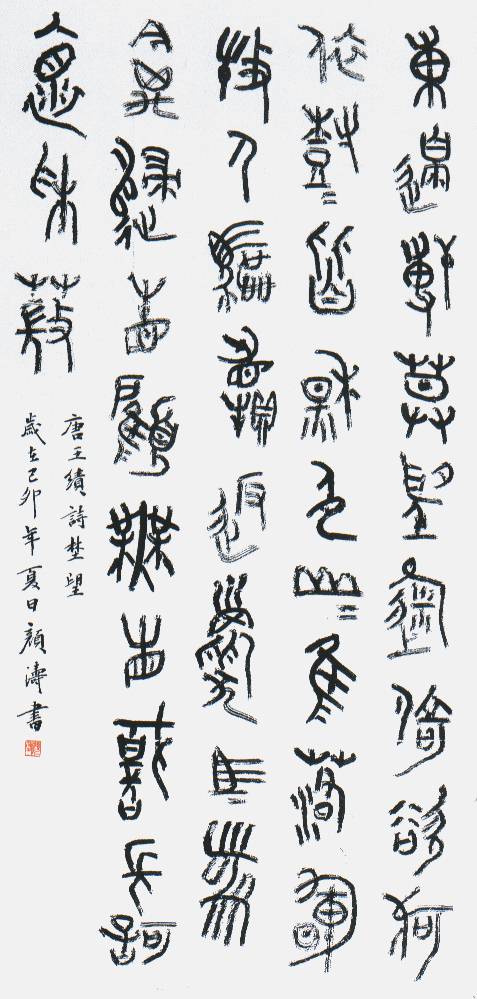 東皋薄暮望徙倚欲何
依樹=皆秋色山=唯落暉
牧人驅犢返獵馬帶
禽歸相顧無相識長歌
懷采薇
唐王績詩埜望
歲在己卯年夏日顏濤書